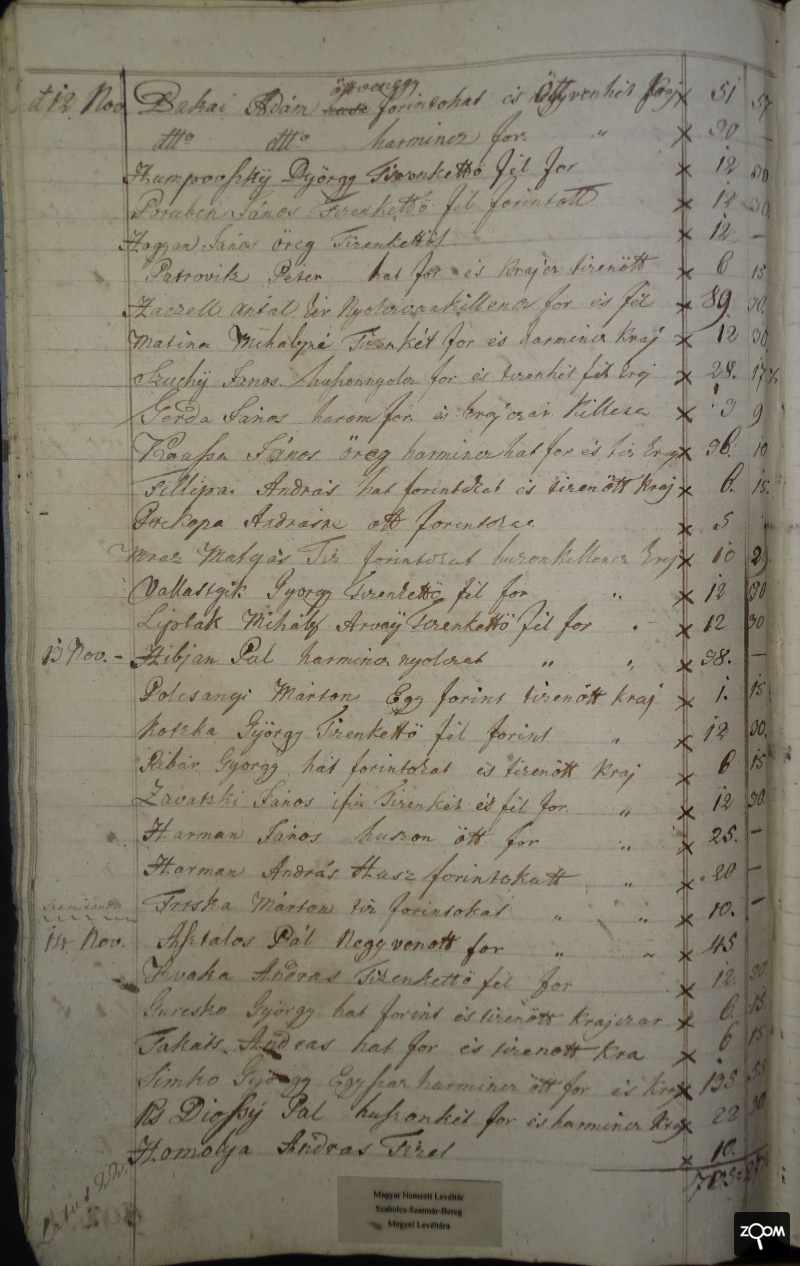 d 12 Nov Bakai Adám ött ven egy forintokat és Öttvenhét Kraj x 51 57
dtto dtto harmincz for. " x 30 —
Humpovszký György Tizenkettö fél for x 12 30
Poruben János Tizenkettö fél forintott x 12 30
Hagyan János öreg Tizenkettöt x 12 —
Patrovits Péter hat for és Krajcz tizenött x 6 15
Haczell Antal Nyolczvankillencz for és fél x 89 30
Matina Mihályné Tizenkét for és harmincz Kraj x 12 30
Szuchÿ János huszonnyolcz for és tizenhét fél kraj x 28. 17½
Gerda János három for és krajczár Killencz x 3 9
János öreg harminczhat for és tiz kraj x 36. 10
Fillipa András hat forintokat és tizenött Kraj x 6. 15.
Prekopa Andrásné ött forintokat x 5
Mraz Matyás Tiz forintokat huszonkillencz kraj x 10 29
György Tizenkettö fél for " x 12 30
Liptak Mihálÿ Arvaÿ Tizenkettö fél for . x 12 30
13 Nov. – Hibjan Pal harmincz nyolczat " " x 38. —
Polcsanyi Márton Egy forint tizenött Kraj x 1. 15
Koszka György Tizenkettö fél forint " x 12 30.
Ribár György hat forintokat és tizenött Kraj x 6 15
Zavatzki János ifiu Tizenkét és fél for. " x 12 30
Harman János huszon ött for " x 25. —
Harman András Husz forintokatt " x 20 —
Triska Márton tiz forintokat " " x 10. —
14 Nov. Asztalos Pál Negyvenött for " " x 45
Kvaka András Tizenkettö fél for x 12. 30
Guresko György hat forint és tizenött Krajczar x 6. 15
Takáts András hat for és tizenött Kra x 6 15
Simko György Egyszáz harmincz ött for és Kraj x 135 35
Diószÿ Pal huszonkét for és harmincz Kraj x 22 30
Homolya András Tizet x 10.
Magyar Nemzeti Levéltár
Szabolcs-Szatmár-Bereg
Megyei Levéltára
ZOOM